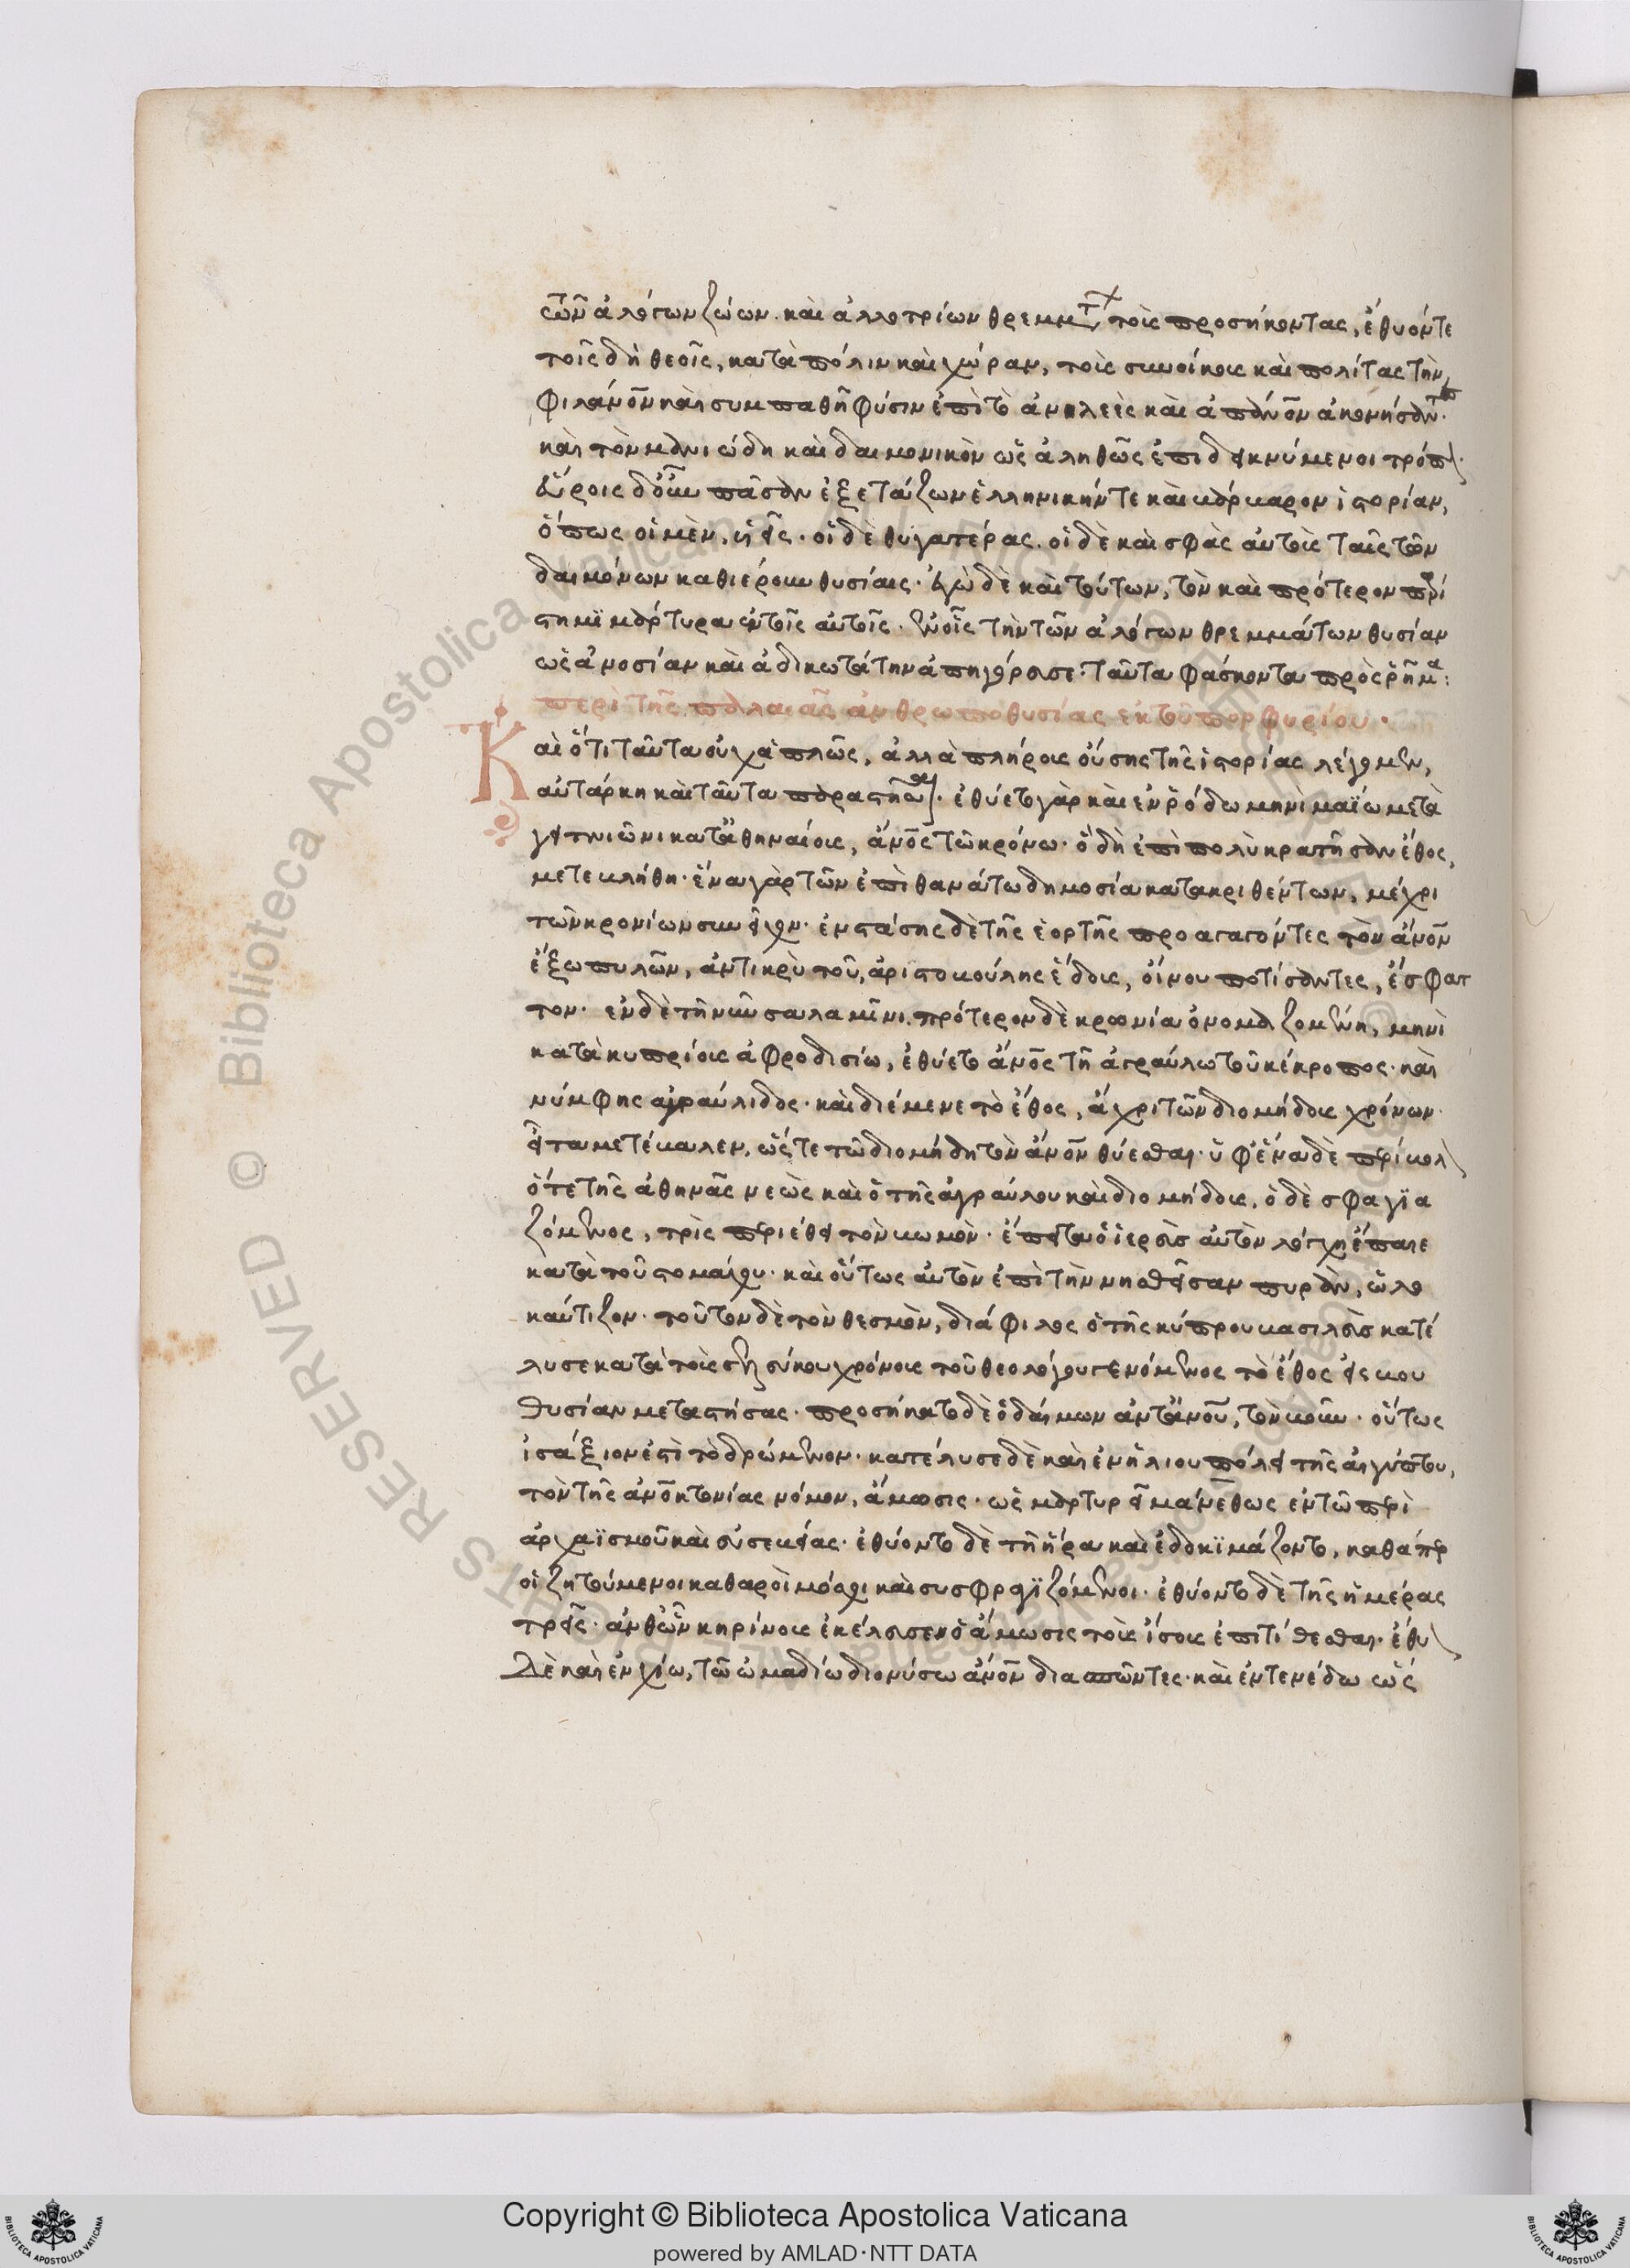 τῶν ἀλόγων ζώων. καὶ ἀλλοτρίων θρεμμάτων τοὺς προσήκοντας, ἔθυόν τε
τοῖς δὴ θεοῖς, κατὰ πόλιν καὶ χώραν, τοὺς συνοίκους καὶ πολίτας τὴν
φιλάνον καὶ συμπαθῆ φύσιν ἐπὶ τὸ ἀνηλεὲς καὶ ἀπάνον ἀκονήσαντες.
καὶ τὸν μανιώδη καὶ δαιμονικὸν ὡς ἀληθῶς ἐπιδεικνύμενοι τρόπον.
εὕροις δ' οὖν πᾶσαν ἐξετάζων ἑλληνικήν τε καὶ βάρβαρον ἱστορίαν,
ὅπως οἱ μὲν, υἱεῖς. οἱ δὲ θυγατέρας. οἱ δὲ καὶ σφᾶς αὐτοὺς ταῖς τῶν
δαιμόνων καθιέρουν θυσίαις. ἐγὼ δὲ καὶ τούτων, τὸν καὶ πρότερον παρί
στημι μάρτυρα ἐν τοῖς αὐτοῖς. ἐν οἷς τὴν τῶν ἀλόγων θρεμμάτων θυσίαν
ὡς ἀνοσίαν καὶ ἀδικωτάτην ἀπηγόρευσε. ταῦτα φάσκοντα πρὸς ῥῆμα:
περὶ τῆς παλαιᾶς ἀνθρωποθυσίας ἐκ τοῦ πορφυρίου.
Καὶ ὅτι ταῦτα οὐχ ἁπλῶς, ἀλλὰ πλήρους οὔσης τῆς ἱστορίας λέγομεν,
αὐτάρκη καὶ ταῦτα παραστῆσαι. ἐθύετο γὰρ καὶ ἐν ῥόδω μηνὶ μαΐω μετὰ
γειτνιῶνι κατ' ἀθηναίους, ἄνος τῶ κρόνω. ὃ δὴ ἐπὶ πολὺ κρατῆσαν ἔθος,
μετεβλήθη. ἕνα γὰρ τῶν ἐπὶ θανάτω δημοσία κατακριθέντων, μέχρι
τῶν κρονίων συνεῖχον. ἐνστάσης δὲ τῆς ἑορτῆς προαγαγόντες τὸν ἄνον
ἔξω πυλῶν, ἀντικρὺ τοῦ, ἀριστοβούλης ἕδους, οἴνου ποτίσαντες, ἔσφατ
τον. ἐν δὲ τῆ νῦν σαλαμῖνι. πρότερον δὲ κρωνία ὀνομαζομένη, μηνὶ
κατὰ κυπρίους ἀφροδισίω, ἐθύετο ἄνος τῆ ἀγραύλω τοῦ κέκροπος. καὶ
νύμφης ἀγραύλιδος. καὶ διέμενε τὸ ἔθος, ἄχρι τῶν διομήδους χρόνων.
εἶτα μετέβαλεν, ὥστε τῶ διομήδη τὸν ἄνον θύεσθαι. ὑφ' ἕνα δὲ περίβολον
ὅ τε τῆς ἀθηνᾶς νεὼς καὶ ὁ τῆς ἀγραύλου καὶ διομήδους, ὁ δὲ σφαγϊα
ζόμενος, τρὶς περιέθει τὸν βωμόν. ἔπειτα ὁ ἱερεὺς αὐτὸν λόγχη ἔπαιε
κατὰ τοῦ στομάχου. καὶ οὕτως αὐτὸν ἐπὶ τὴν νησθεῖσαν πυρὰν, ὡλο
καύτιζον. τοῦτον δὲ τὸν θεσμὸν, διάφιλος ὁ τῆς κύπρου βασιλεὺς κατέ
λυσε κατὰ τοὺς σελεύκου χρόνους τοῦ θεολόγου γενόμενος τὸ ἔθος εἰς βου
θυσίαν μεταστήσας. προσήκατο δὲ ὁ δαίμων ἀντ' ἄνου, τὸν βοῦν. οὕτως
ἰσάξιον ἐστὶ τὸ δρώμενον. κατέλυσε δὲ καὶ ἐν ἡλίου πόλει τῆς αἰγύπτου,
τὸν τῆς ἀνοκτονίας νόμον, ἄμωσις. ὡς μαρτυρεῖ μάνεθως ἐν τῶ περὶ
ἀρχαϊσμοῦ καὶ εὐσεβείας. ἐθύοντο δὲ τῆ ἥρα καὶ ἐδοκϊμάζοντο, καθάπερ
οἱ ζητούμενοι καθαροὶ μόσχοι καὶ συσφραγϊζόμενοι. ἐθύοντο δὲ τῆς ἡμέρας
τρεῖς. ἀνθ' ὧν κηρίνους ἐκέλευσεν ὁ ἄμωσις τοὺς ἴσους ἐπιτίθεσθαι. ἐθύον
δὲ καὶ ἐν χίω, τῶ ὠμαδίω διονύσω ἄνον διασπῶντες. καὶ ἐν τενέδω ὥς